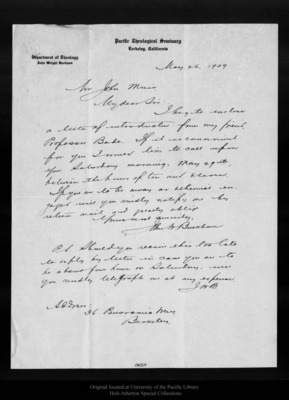 Pacific Theological Seminary
Berkeley, California
Department of Theology
John Wright Buckham
May 26, 1909
Mr John Muir,
My dear Sir
I beg to enclose
a letter of introduction from my friend,
Professor Bade. If it is convenient
for you I would like to call upon
you Saturday morning, May 29th
between the hours of ten and eleven.
If you are to be away or otherwise en-
gaged will you kindly notify me by
return mail and greatly oblige
Yours most sincerely,
John W. Buckham
P.S. Should you receive this too late
to reply by letter in case you are to
be about from home on Saturday, will
you kindly telegraph me at my expense
J.W.B
Address:
36 Panoramic Way
Berkeley
Original located at University of the Pacific Library
Holt-Atherton Special Collections